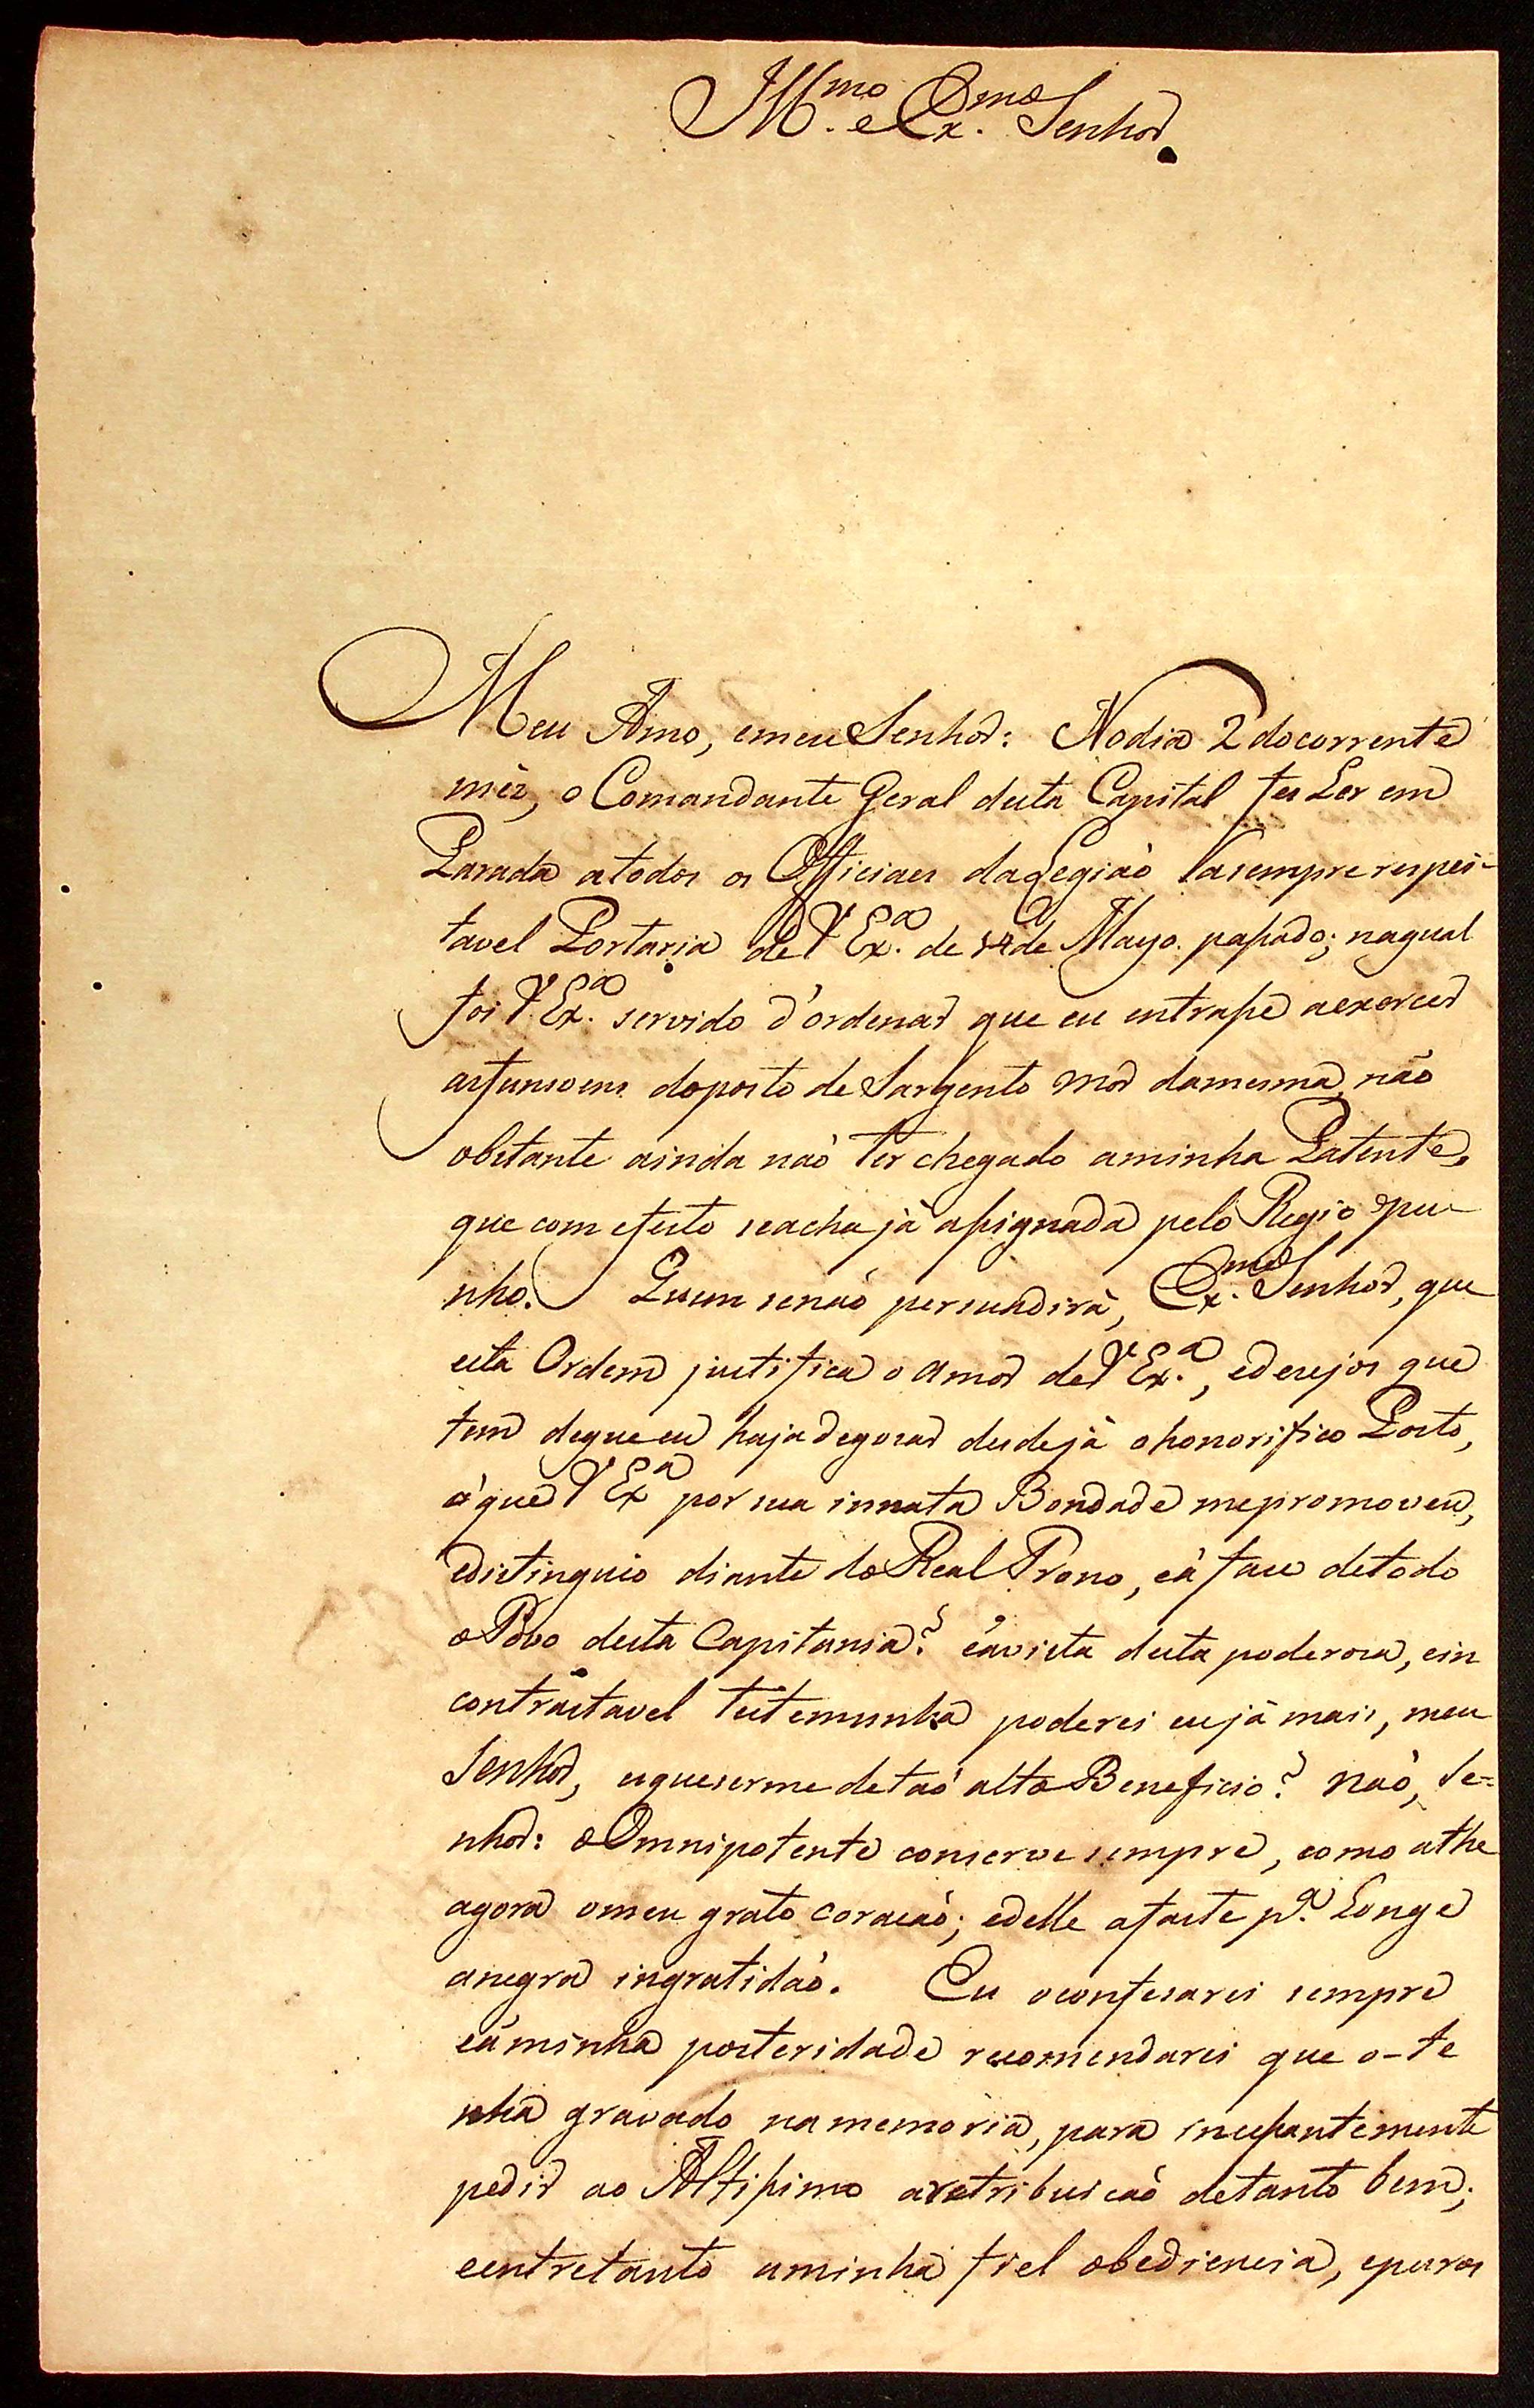 Ill.mo e Ex.mo Senhor
Meu Amo, emeu Senhor: Nodia 2 docorrente
mêz, o Comandante Geral desta Capital fes Ler em
Parada atodos os Officiaes daLegiaò a sempre respei-
tavel Portaria de V Ex.a de 14 de Mayo passado; naqual
foi V Ex.a servido d'ordenar que eu entrasse aexercer
asfunsoens doposto de Sargento Mor damesma, não
obstante ainda naò ter chegado aminha Patente,
que com efeito seacha jà assignada pelo Regio pu-
nho. Quem senaò persuadirà, Ex.mo Senhor, que
esta Ordem justifica o amor de V Ex.a, edesejos que
tem dequeeu haja degosar desdejà ohonorifico Posto,
áque V Ex.a por sua innata Bondade mepromoveu,
edistinguio diante do Real Trono, eà face detodo
o Povo desta Capitania? eávista desta poderosa, ein
contrastavel testemunha poderei eujàmais, meu
Senhor, esqueserme detaò alto Beneficio? naò, Se=
nhor: o Omnipotente conserve sempre, como athe
agora omeu grato coracaò; edelle afaste p.a Longe
anegra ingratidaò. Eu oconfesarei sempre
eáminha posteridade recomendarei que o-te
nha gravado namemoria, para incessantemente
pedir ao Altissimo aretribuicaò detanto bem;
eentretanto aminha fiel obediencia, epuros